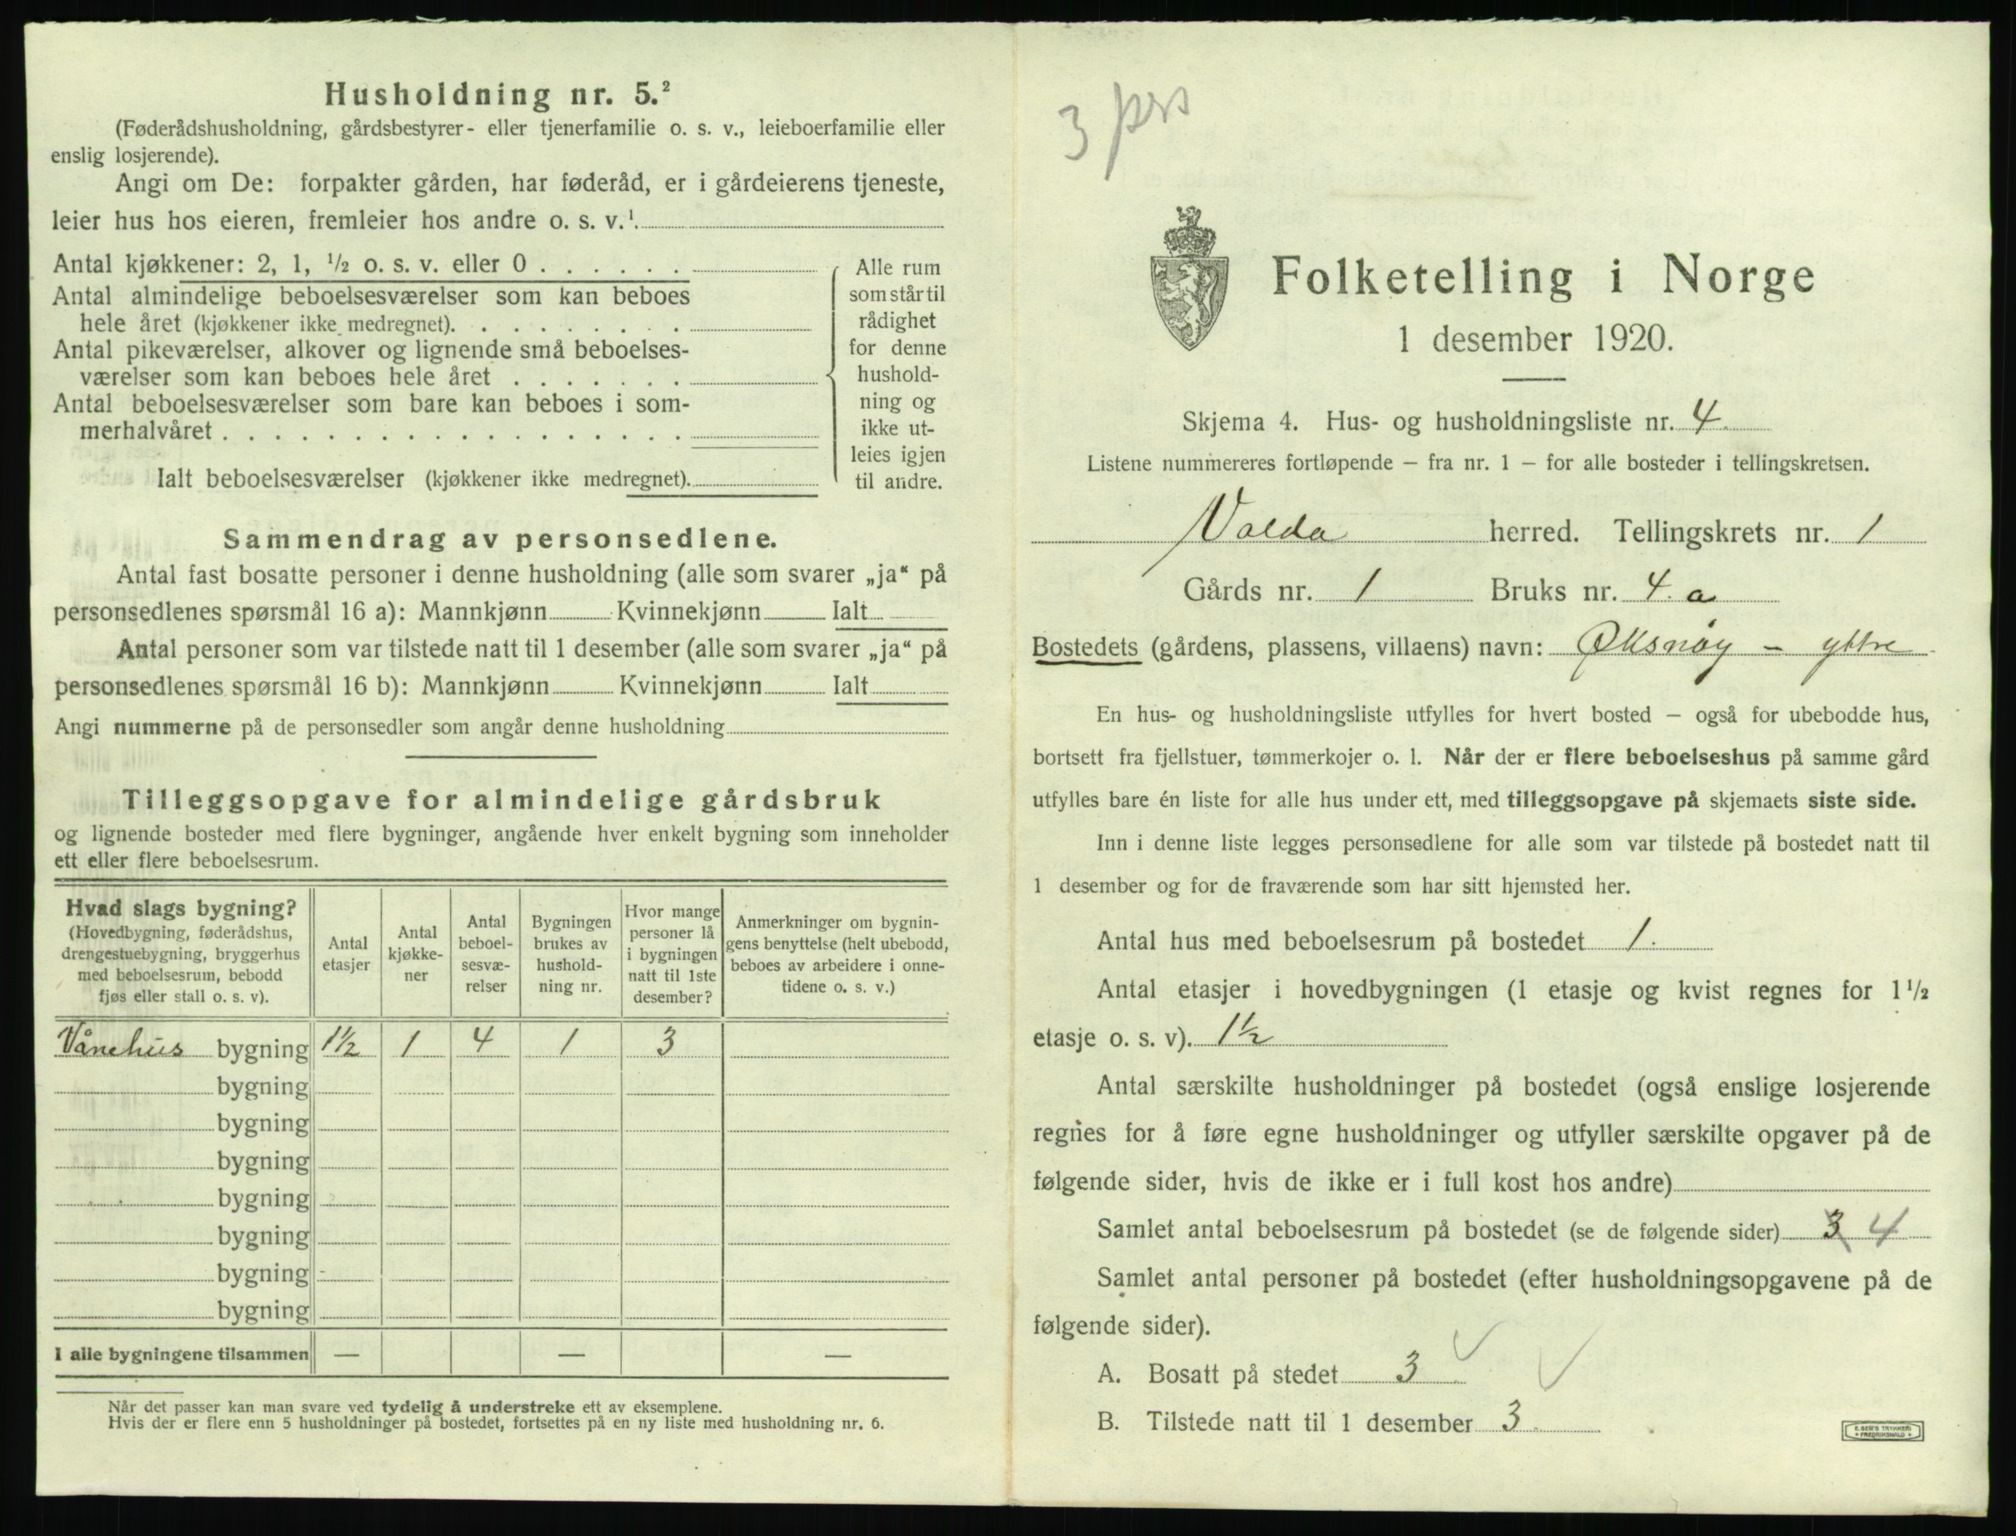 Husholdning nr. 5.²
(Føderådshusholdning, gårdsbestyrer- eller tjenerfamilie o. s. v., leieboerfamilie eller
enslig losjerende).
Angi om De: forpakter gården, har føderåd, er i gårdeierens tjeneste,
leier hus hos eieren, fremleier hos andre o. s. v.¹
Antal kjøkkener: 2, 1, ½ o. s. v. eller 0 . . . . . .
Antal almindelige beboelsesværelser som kan beboes
hele året (kjøkkener ikke medregnet). . . . . . . . .
Antal pikeværelser, alkover og lignende små beboelses-
værelser som kan beboes hele året . . . . . . .
Antal beboelsesværelser som bare kan beboes i som-
merhalvåret . . . . . . . . . . . . . . . . . .
Ialt beboelsesværelser (kjøkkener ikke medregnet).
Alle rum
som står til
rådighet
for denne
hushold-
ning og
ikke ut-
leies igjen
til andre.
Sammendrag av personsedlene.
Antal fast bosatte personer i denne husholdning (alle som svarer „ja“ på
personsedlenes spørsmål 16 a): Mannkjønn Kvinnekjønn Ialt
Antal personer som var tilstede natt til 1 desember (alle som svarer „ja“ på
personsedlenes spørsmål 16 b): Mannkjønn Kvinnekjønn Ialt
Angi nummerne på de personsedler som angår denne husholdning
Tilleggsopgave for almindelige gårdsbruk
og lignende bosteder med flere bygninger, angående hver enkelt bygning som inneholder
ett eller flere beboelsesrum.
Hvad slags bygning?
(Hovedbygning, føderådshus,
drengestuebygning, bryggerhus
med beboelsesrum, bebodd
fjøs eller stall o. s. v).
Antal
etasjer
Antal
kjøkke-
ner
Antal
beboel-
sesvæ-
relser
Bygningen
brukes av
hushold-
ning nr.
Hvor mange
personer lå
i bygningen
natt til 1ste
desember?
Anmerkninger om bygnin-
gens benyttelse (helt ubebodd,
beboes av arbeidere i onne-
tidene o. s. v.)
Vånehus bygning 1½ 1 4 1 3
bygning
bygning
bygning
bygning
bygning
bygning
bygning
I alle bygningene tilsammen — — —
Når det passer kan man svare ved tydelig å understreke ett av eksemplene.
Hvis der er flere enn 5 husholdninger på bostedet, fortsettes på en ny liste med husholdning nr. 6.
3 pers
Folketelling i Norge
1 desember 1920.
Skjema 4. Hus- og husholdningsliste nr. 4.
Listene nummereres fortløpende – fra nr. 1 – for alle bosteder i tellingskretsen.
Volda herred. Tellingskrets nr. 1
Gårds nr. 1 Bruks nr. 4. a
Bostedets (gårdens, plassens, villaens) navn: Øksnøy – yttre
En hus- og husholdningsliste utfylles for hvert bosted – også for ubebodde hus,
bortsett fra fjellstuer, tømmerkojer o. l. Når der er flere beboelseshus på samme gård
utfylles bare én liste for alle hus under ett, med tilleggsopgave på skjemaets siste side.
Inn i denne liste legges personsedlene for alle som var tilstede på bostedet natt til
1 desember og for de fraværende som har sitt hjemsted her.
Antal hus med beboelsesrum på bostedet 1.
Antal etasjer i hovedbygningen (1 etasje og kvist regnes for 1½
etasje o. s. v). 1½
Antal særskilte husholdninger på bostedet (også enslige losjerende
regnes for å føre egne husholdninger og utfyller særskilte opgaver på de
følgende sider, hvis de ikke er i full kost hos andre)
Samlet antal beboelsesrum på bostedet (se de følgende sider) 3 4
Samlet antal personer på bostedet (efter husholdningsopgavene på de
følgende sider).
A. Bosatt på stedet 3
B. Tilstede natt til 1 desember 3.